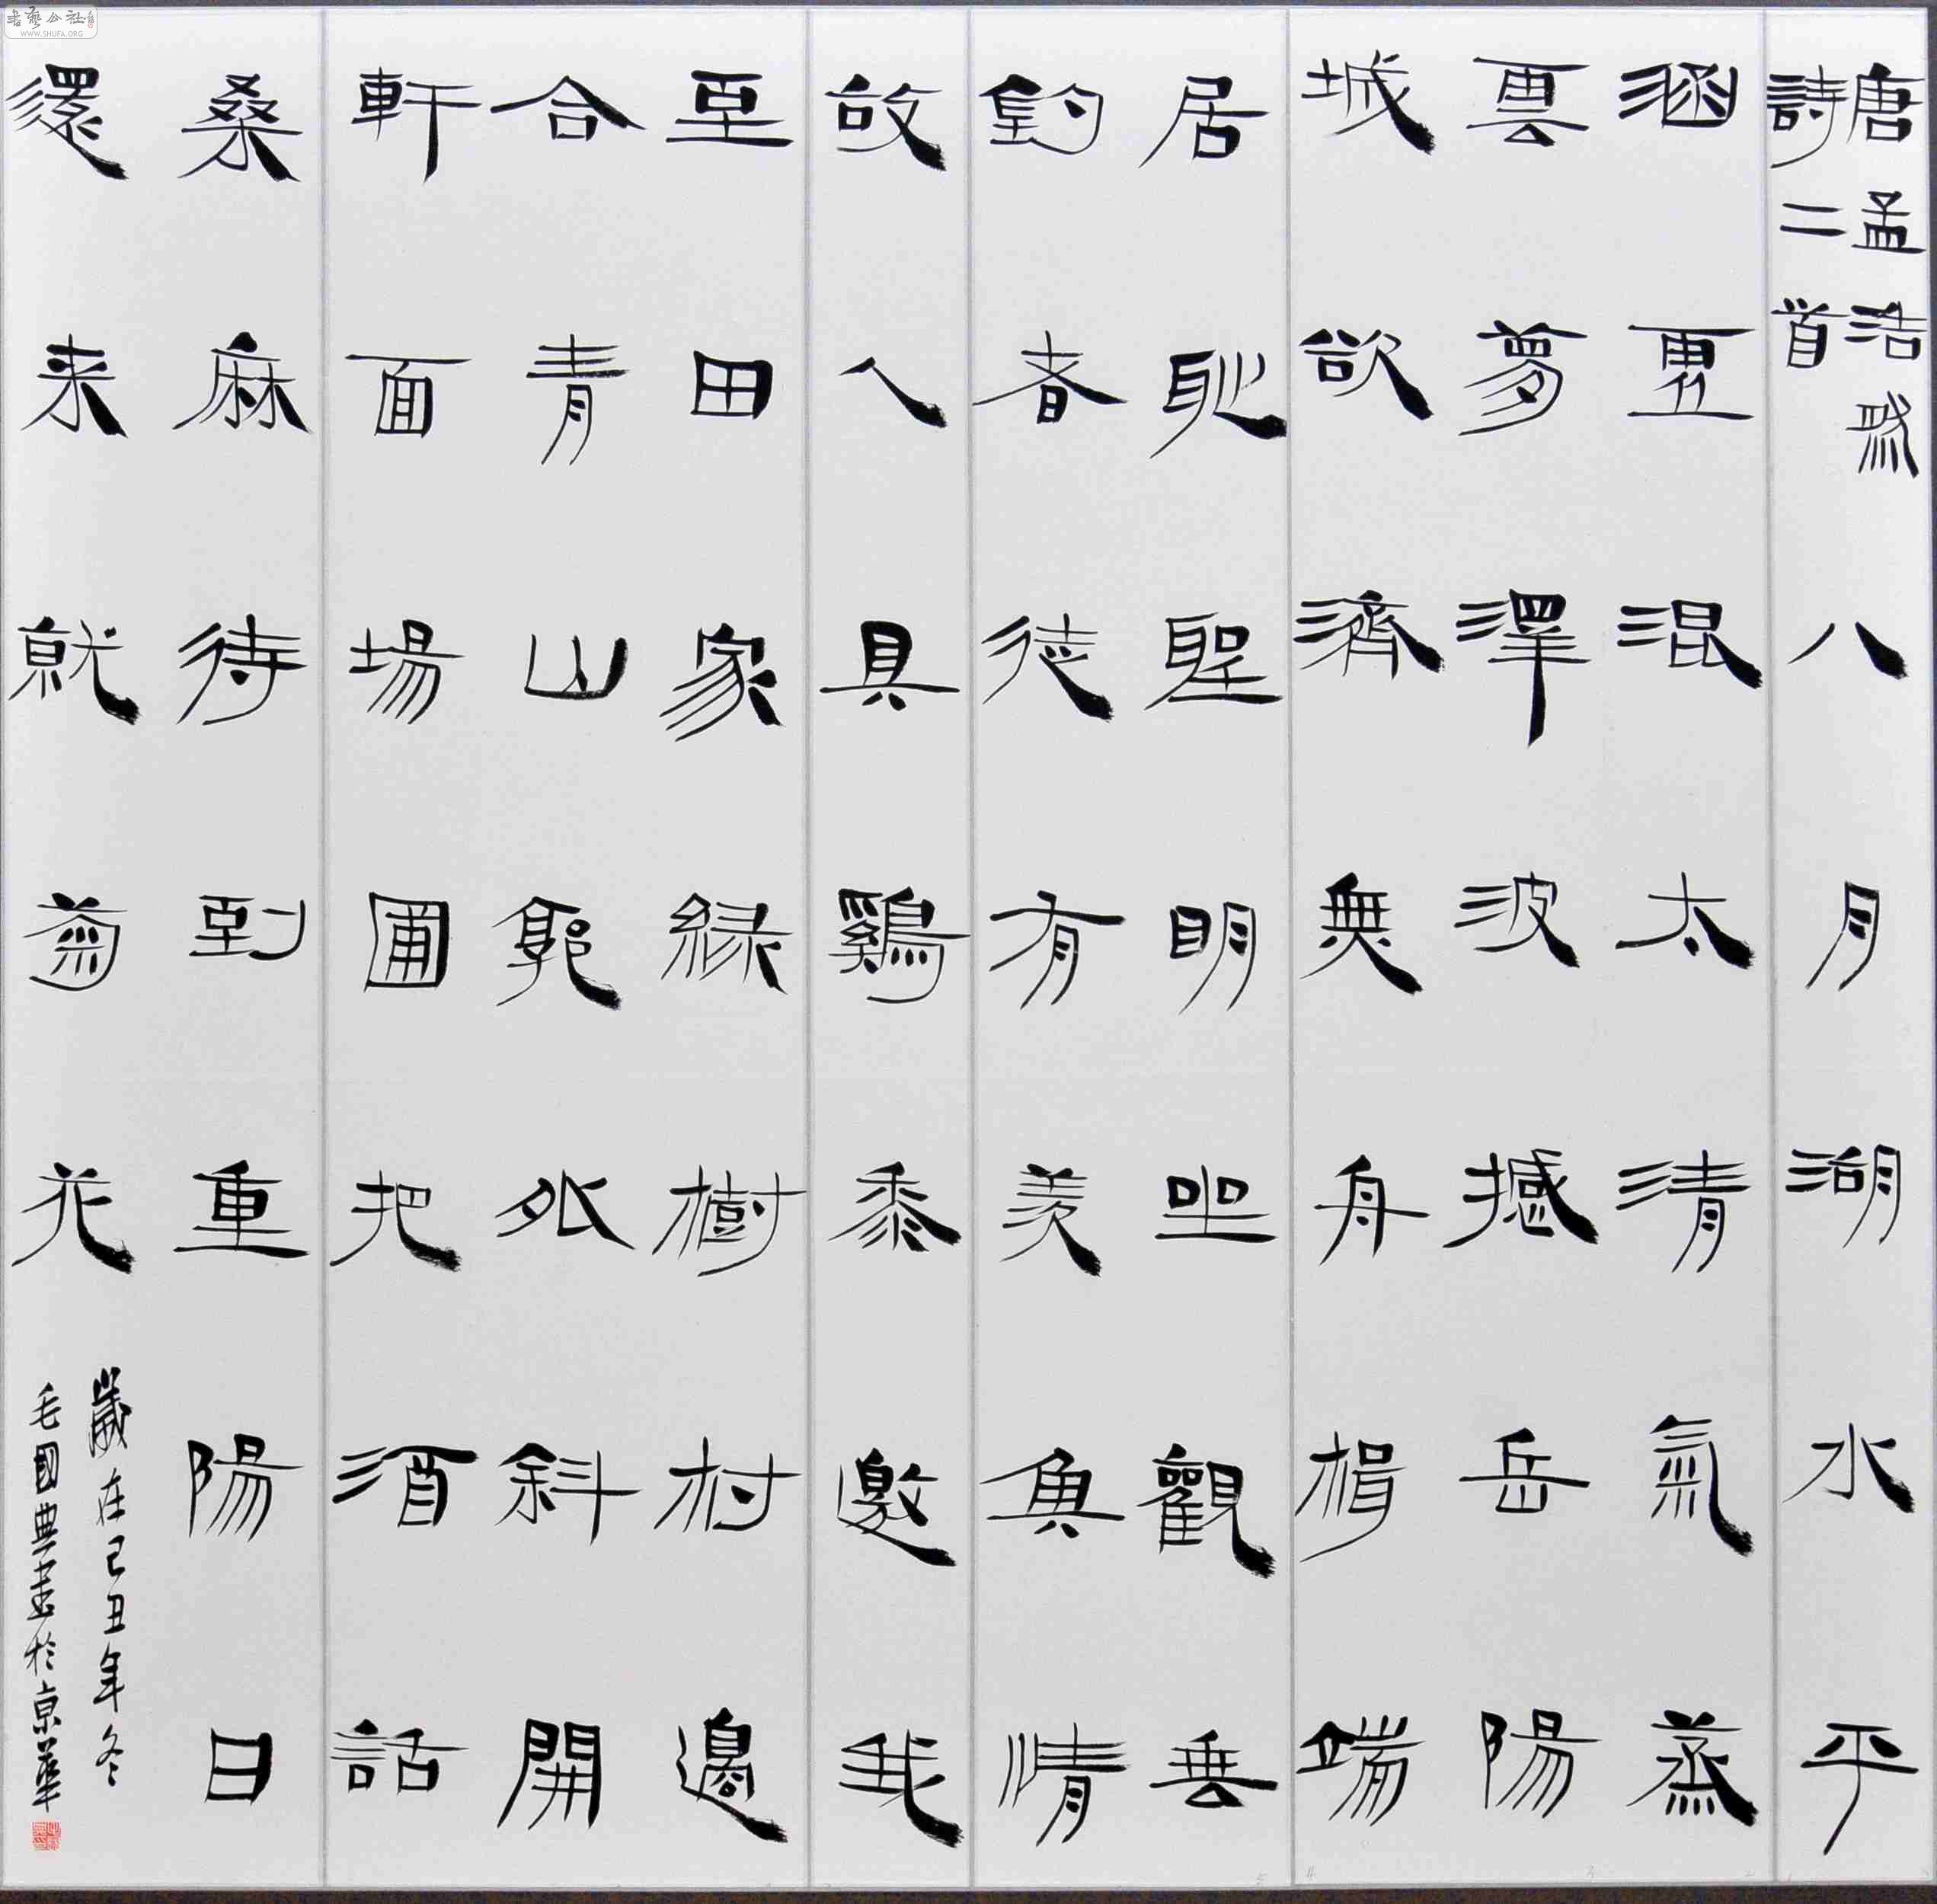 唐孟浩然
詩二首
八月湖水平
涵虛混太清氣蒸
雲夢澤波撼岳陽
城欲濟無舟楫端
居恥聖明坐觀垂
釣者徒有羨魚情
故人具鷄黍邀我
至田家緑樹村邊
合青山郭外斜開
軒面場圃把酒話
桑麻待到重陽日
還来就菊花
歲在己丑年冬
毛國典書於京華
書藝公社
WWW.SHUFA.ORG